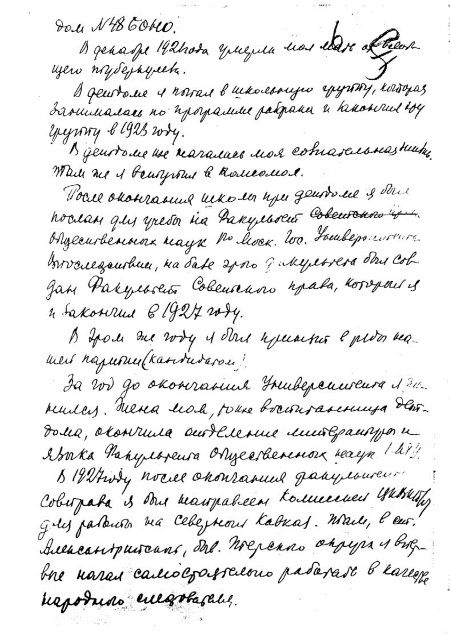 дом №48 БОНО.
В декабре 1921 года умерла моя мать от
щего туберкулеза.
В детдоме я попал в школьную группу, которая
занималась по программе рабфака и закончил эту
группу в 1923 году.
В детдоме же началась моя сознательная жизнь.
Там же я вступил в комсомол.
После окончания школы при детдоме я был
послан для учебы на Факультет Советского
общественных наук Моск. Гос. Университета
Впоследствии, на базе этого факультета был соз-
дан Факультет Советского права, который я
и закончил в 1927 году.
В этом же году я был принят в ряды на-
шей партии (кандидатом)
За год до окончания Университета я же-
нился. Жена моя, тоже воспитанница дет-
дома, окончила отделение литературы и
языка Факультета общественных наук I МГУ.
В 1927 году после окончания факультета
совправа я был направлен комиссией
для работы на Северный Кавказ. Там, в ст.
Александрийской, быв. Терского округа я впер-
вые начал самостоятельно работать в качестве
народного следователя.